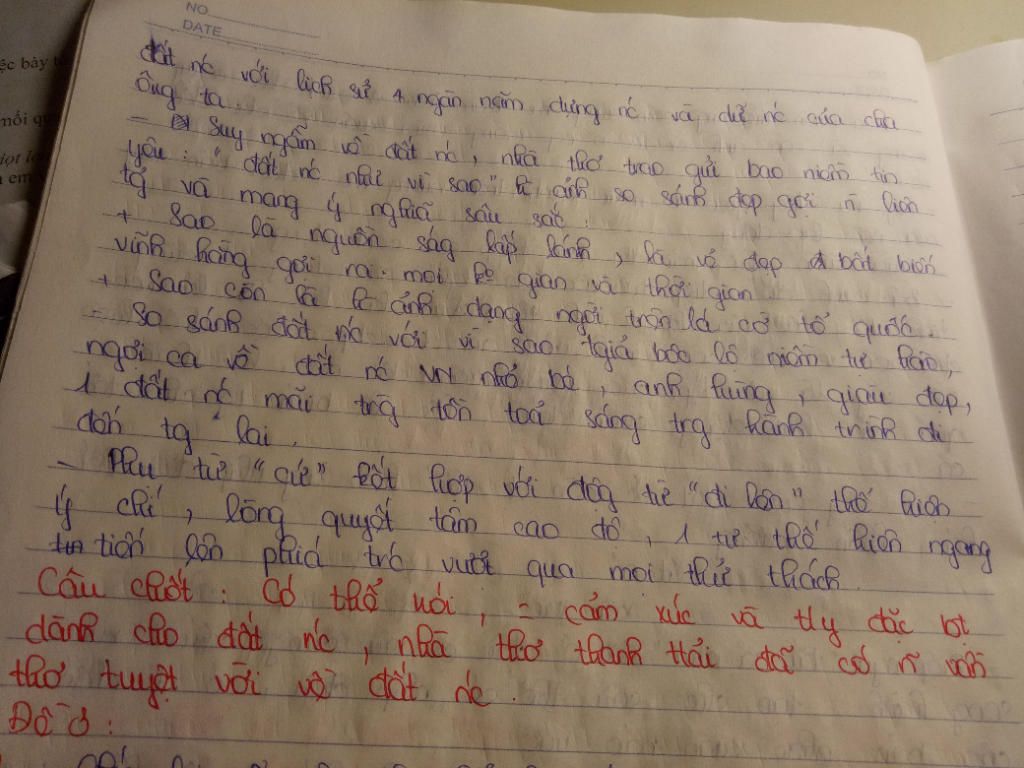 NO
DATE
đất nc với lịch sử 4 ngàn năm dựng nc và dữ nc của cha
ông ta.
- Suy ngẫm về đất nc, nhà thơ trao gửi bao niềm tin
yêu: "đất nc như vì sao" h ảnh so sánh đẹp gợi n liên
tg và mang ý nghĩa sâu sắc.
+ Sao là nguồn ság lấp lánh, là vẻ đẹp bất biến
vĩnh hằng gợi ra mọi ko gian và thời gian
+ Sao còn là h ảnh dạng ngời trên lá cờ tổ quốc.
- So sánh đất nc với vì sao tgiả bộc lộ niềm tự hào,
ngợi ca về đất nc VN nhỏ bé, anh hùng, giàu đẹp,
1 đất nc mãi trg tồn toả sáng trg hành trình đi
đến tg lai.
- Phụ từ "cứ" kết hợp với độg từ "đi lên" thể hiện
ý chí, lòng quyết tâm cao độ, 1 tư thế hiên ngang
tiến lên phiá trc vượt qua mọi thử thách.
Câu chốt: Có thể nói, = cảm xúc và ty đặc bt
dành cho đất nc, nhà thơ thanh Hải đã có n vần
thơ tuyệt vời về đất nc.
Đề 3:
ệc bày t
mối qu
iọt lo
em